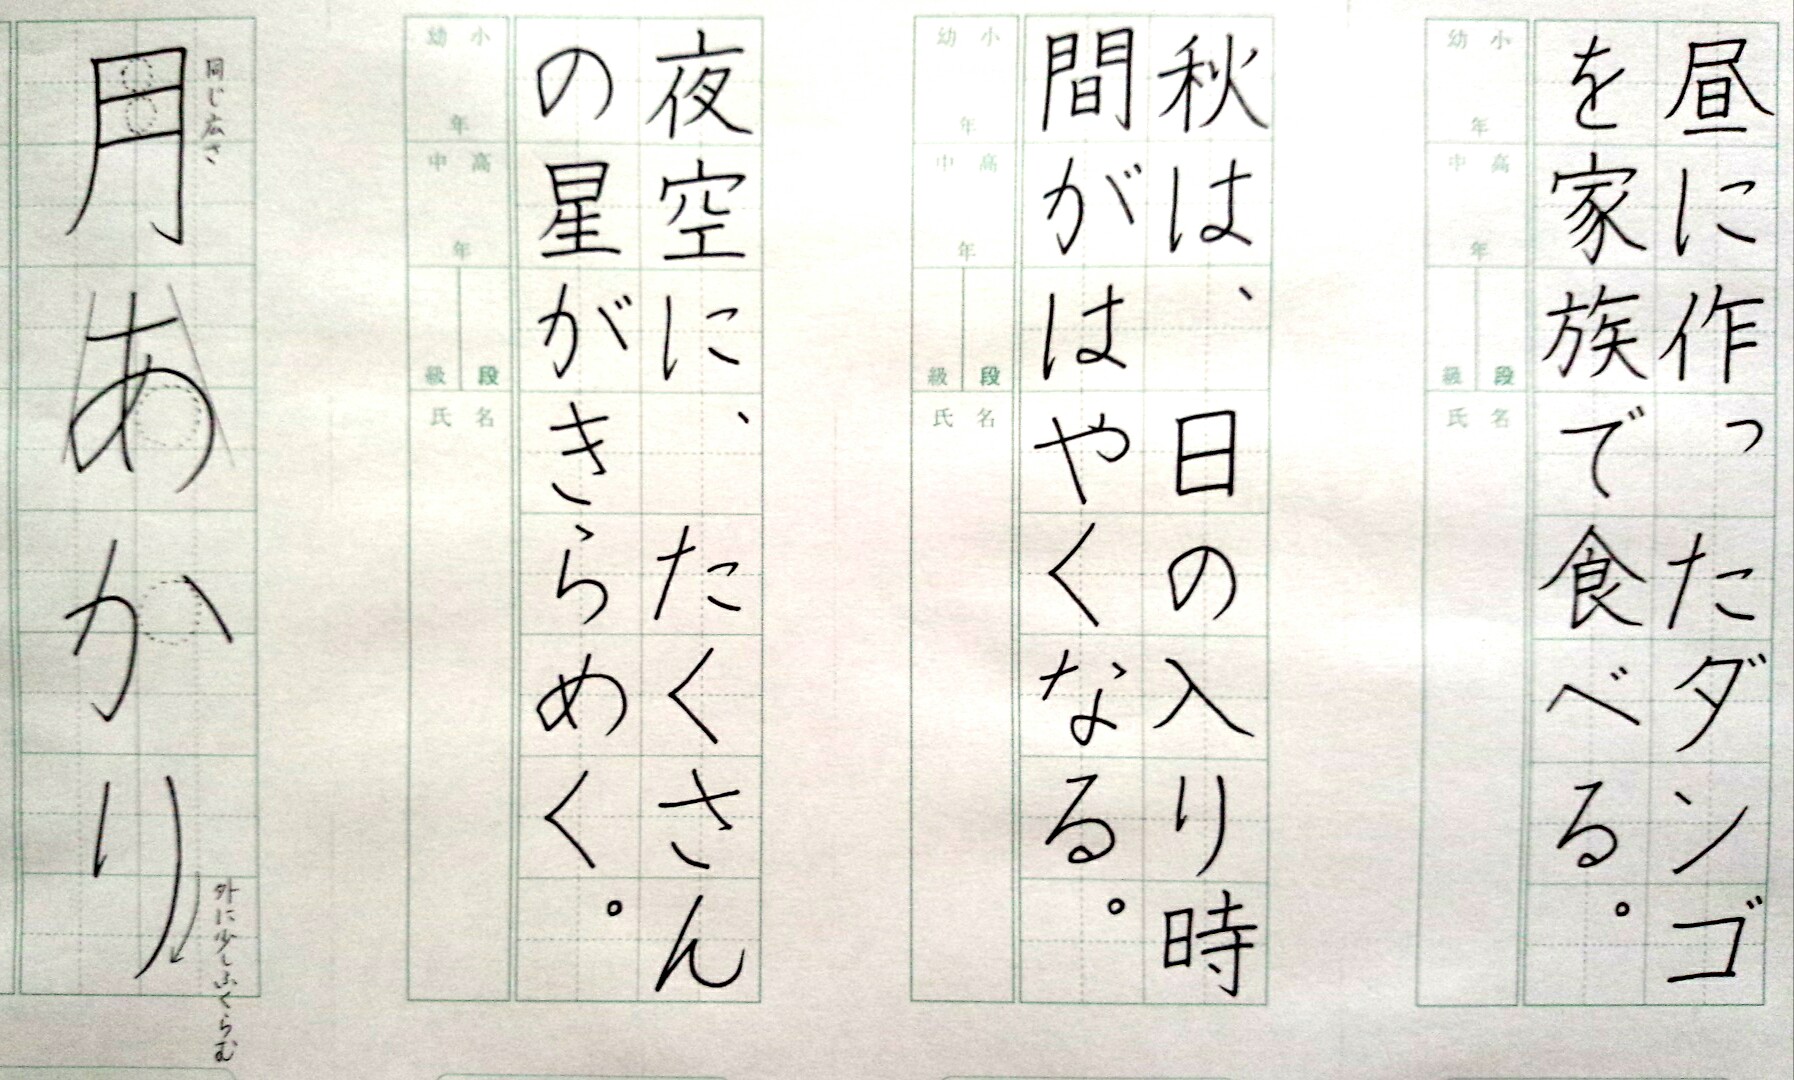 昼に作ったダンゴ
を家族で食べる。
小幼
年
高中
年
段級
名氏
秋は、日の入り時
間がはやくなる。
小幼
年
高中
年
段級
名氏
夜空に、たくさん
の星がきらめく。
小幼
年
高中
年
段級
名氏
同じ広さ
外に少しふくらむ
月あかり